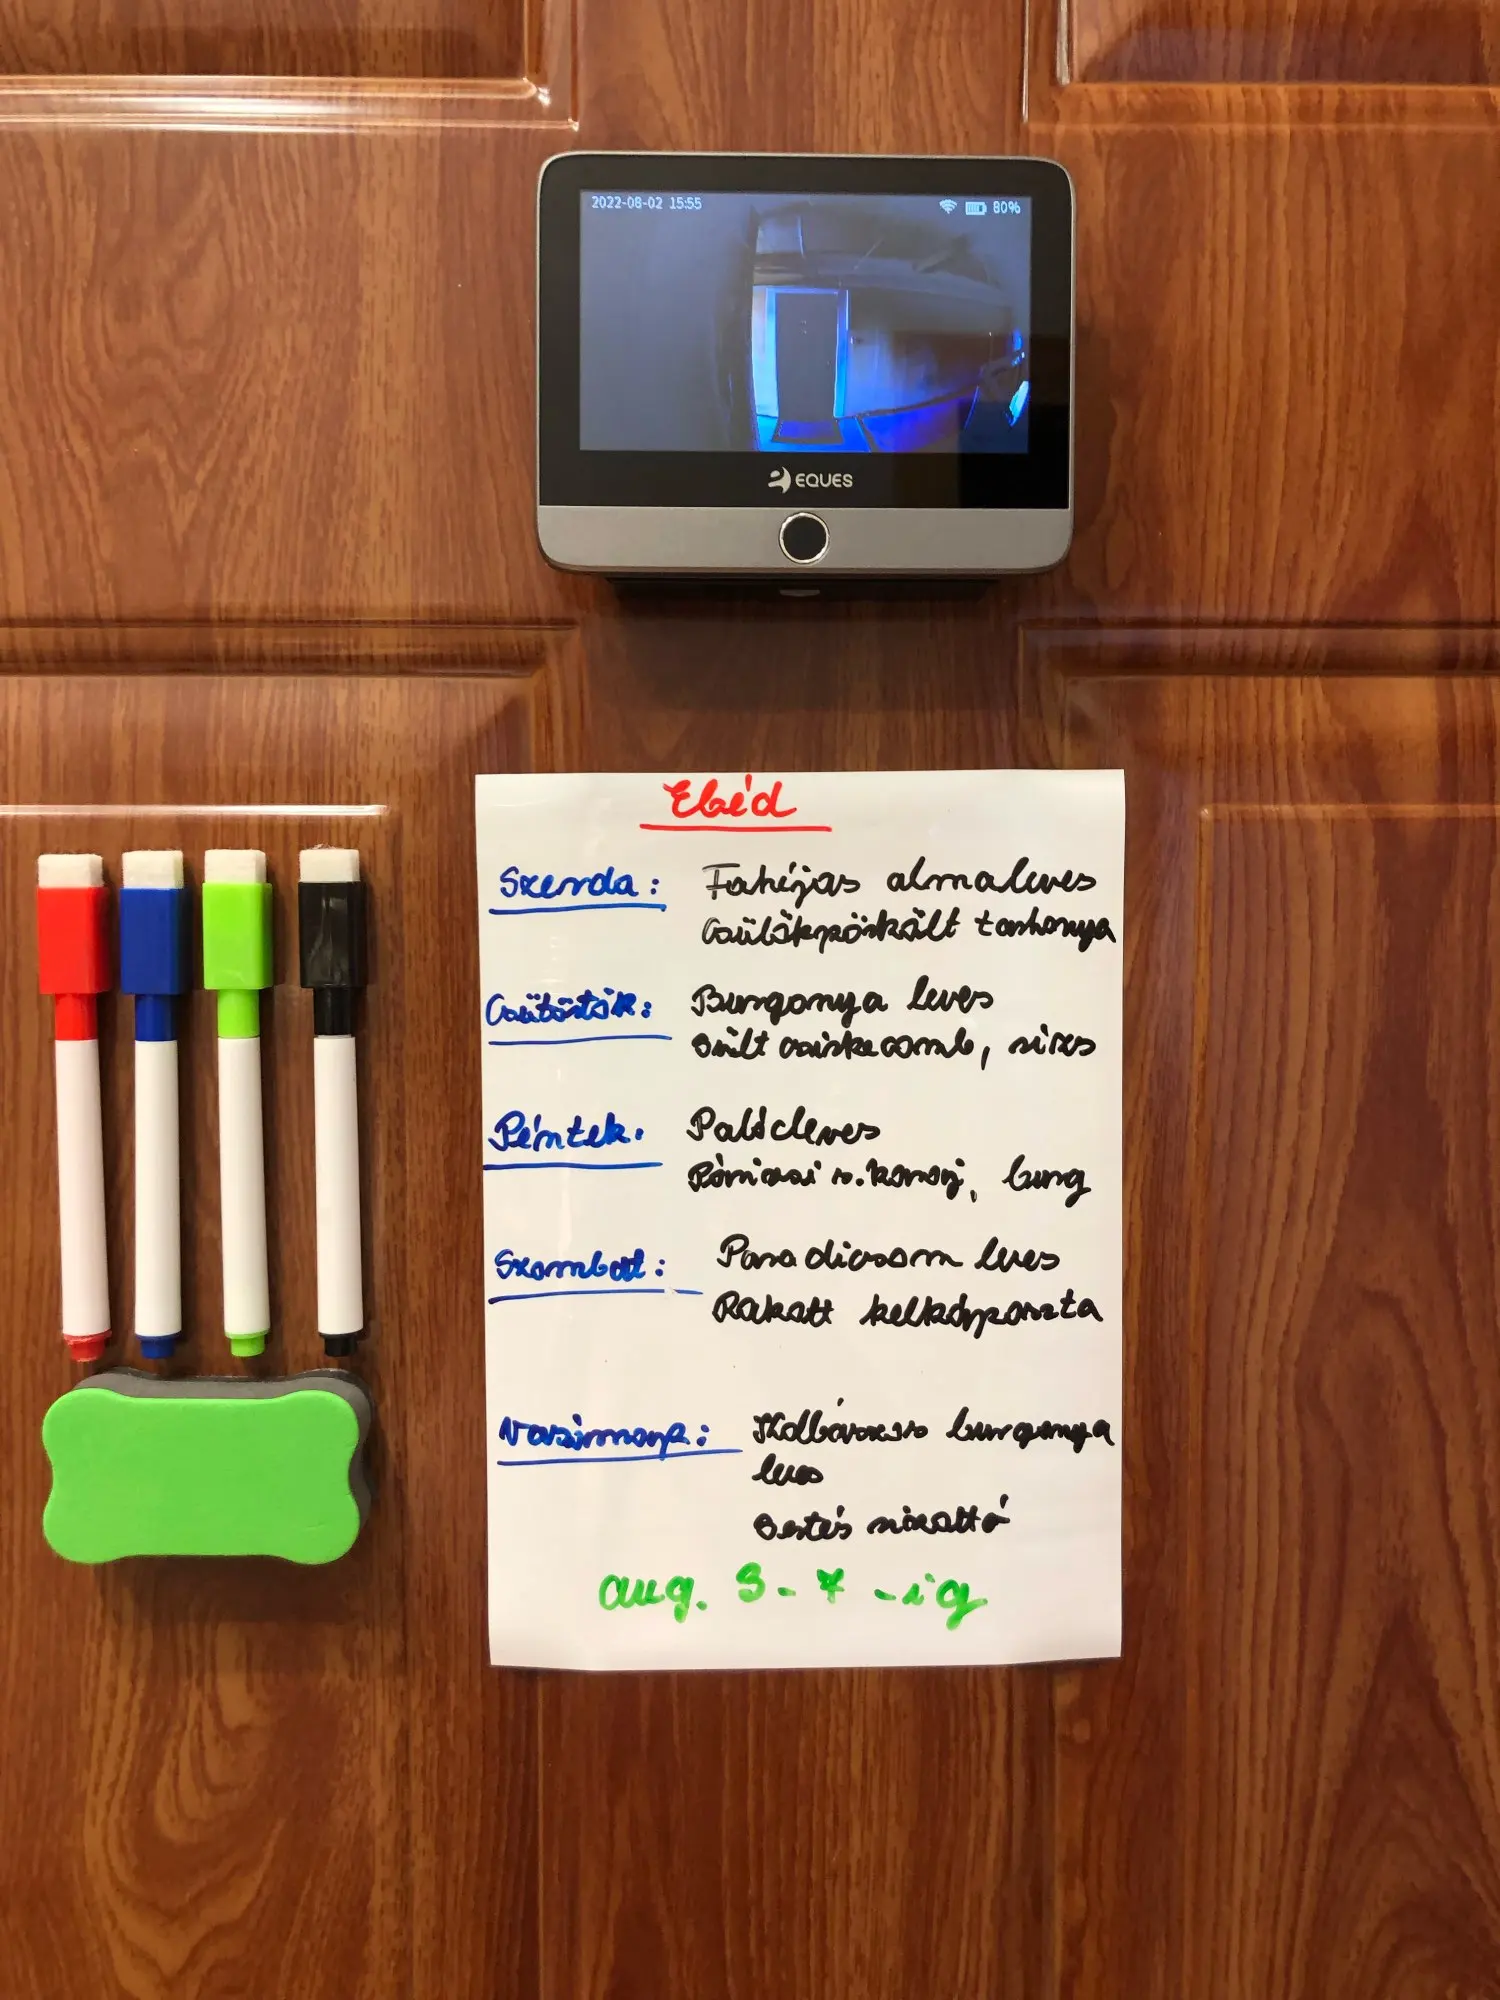 2022-08-02 15:55
80%
EQUES
Ebéd
Szerda: Fahéjas almaleves
Csülökpörkölt tarhonya
Csütörtök: Burgonya leves
Sült csirkecomb, rizs
Péntek: Palócleves
Párizsi s. karaj, burg
Szombat: Paradicsom leves
Rakott kelkáposzta
Vasárnap: Kolbászos burgonya
leves
Sertés
aug. 3-7-ig